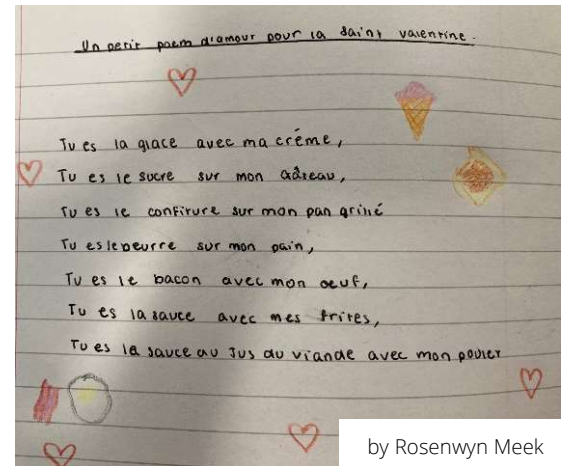 Un petit poem d'amour pour la Saint valentine.
Tu es la glace avec ma créme,
Tu es le sucre sur mon gâteau,
Tu es le confiture sur mon pan grillé
Tu es le beurre sur mon pain,
Tu es le bacon avec mon oeuf,
Tu es la sauce avec mes frites,
Tu es la sauce au jus du viande avec mon poulet
by Rosenwyn Meek